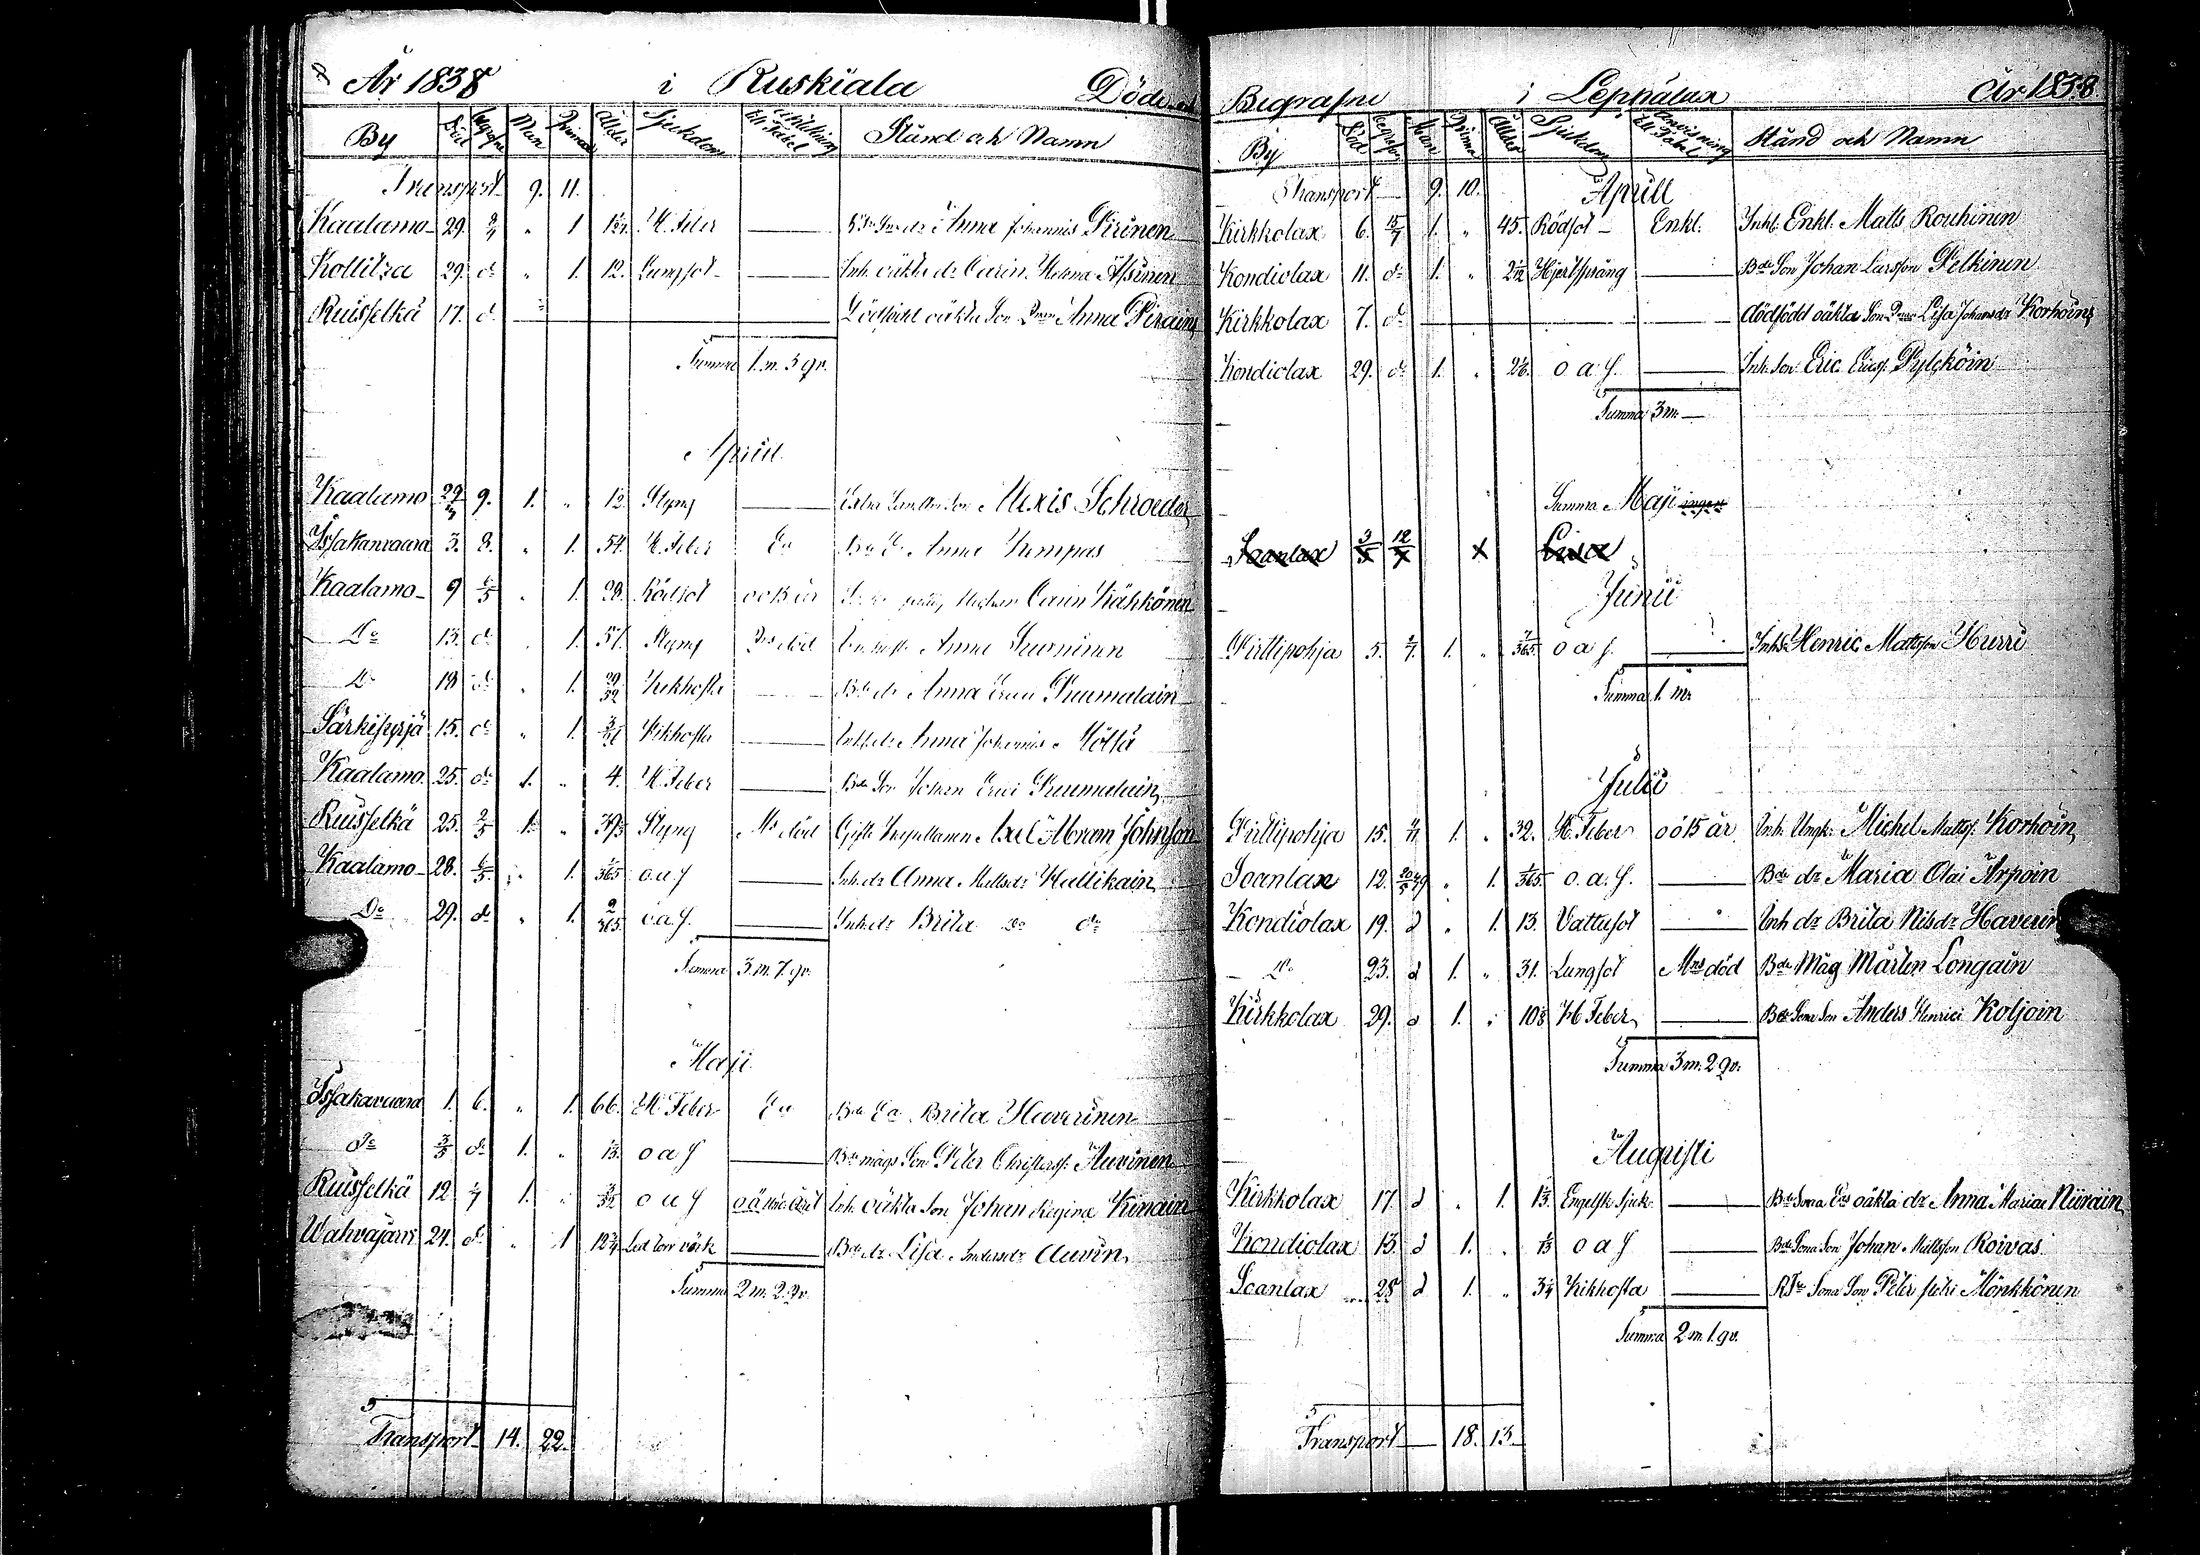 År 1838 i Ruskiala Döde och
By Död begrafne Man Qvinna Ålder Sjukdom Anvisning till Tabel Stånd och Namn
Transport 9. 11.
Kaalamo 29. 1 H. Feber Anna Johannis Pirinen
Kollitza 29. do " 1. 12. Lungsot Inh. oäkta dr Carin Helena
Ruisselkä 17. d. Dödfödt oäkta Son Anna
Summa 1. m. 3 qv.
April
Kaalamo 29/3 9. 1. " Styng Alexis Schroeder
Issakanvaara 3. 8. " 1. 54. H. Feber Ea Bde Ea Anna Kumpas
Kaalamo 9 6/5 " 1. 28. Rödsot oo 15 år Carin Kähkönen
Do 13. do " 1. 57. Styng Ms död Anna Surninen
Do 18 do " 1. 29/32 Kikhosta Bde dr Anna Erici Puumalain
Särkisyrjä 15. do " 1. Kikhosta Inh. dr Anna Johannis Höltä
Kaalamo 25. do 1. " 4. H. Feber Bde Son Johan Erici Puumalain
Ruisselkä 25. 2/5 1. " Styng Ms död Gifte Axel Abram Johnsson
Kaalamo 28. 6/5. " 1. 1/365 o a f Inh. dr Anna Mattsdr Hallikain
Do 29. do " 1. 2/365 o a f. Inh. dr Brita Do do
Summa 3. m. 7. qv.
Maji
Issakavaara 1. 6. " 1. 66. H Feber Ea Bde Ea Brita Haverinen
do 3/5 do 1. " o a f Bde mågs Son Peter Christerss. Auvinen
Ruisselkä 12 1. " o a f Inh. oäkta Son Johan Regina Kinain
Wahvajärvi 24. do " 1 Led torr värk Bde dr Lisa Andersdr Auvin
Summa 2 m. 2. qv.
Transport 14. 22.
Begrafne i Leppälax År 1838
By Död begrafne Man Qvinna Ålder Sjukdom Anvisning till Tabel Stånd och Namn
Transport 9. 10. Aprill
Kirkkolax 6. 15/7 1. " 45. Rödsot Enkl. Inh. Enkl. Mats Rouhinen
Kondiolax 11. do 1. " 2 1/12 Hjertsprång Bde Son Johan Larsson Pelkinen
Kirkkolax 7. do dödfödd oäkta Son Lisa Johansdr Korhoin
Kondiolax 29. do 1. " 2 1/6. o a f. Inh. Son Eric Ericss. Pylcköin
Summa 3 m.
Summa Maji ingen
Soanlax 3/5 12/7 x Lisa
Junii
Pirttipohja 5. 1. " 7/365. o a f. Inh. S. Henric Mattsson Hurri
Summa 1. m.
Julii
Pirttipohja 15. 1. " 32. H. Feber o ö 15 år Inh. Ungk. Michel Mattss. Korhoin
Soanlax 12. " 1. 1/365. o. a. f. Bde dr Maria Olai Arpoin
Kondiolax 19. d " 1. 13. Vattusot Inh dr Brita Nilsdr Haverin
Do 23. d 1. " 31. Lungsot Ms död Bde Måg Mårten Longain
Kirkkolax 29. d 1. " H Feber Bde Sona Son Anders Henrici Koljoin
Summa 3 m. 2 qv.
Augusti
Kirkkolax 17. d " 1. Engelsk Sjuk. Bde Sona Eas oäkta dr Anna Mariae Niirain
Kondiolax 13. d 1. " o a f Bde Sona Son Johan Mattsson Roivas
Soanlax 28 d 1. " 3 1/4 Kikhosta Sona Son Peter Mönkkönen
Summa 2 m. 1. qv.
Transport 18. 13.